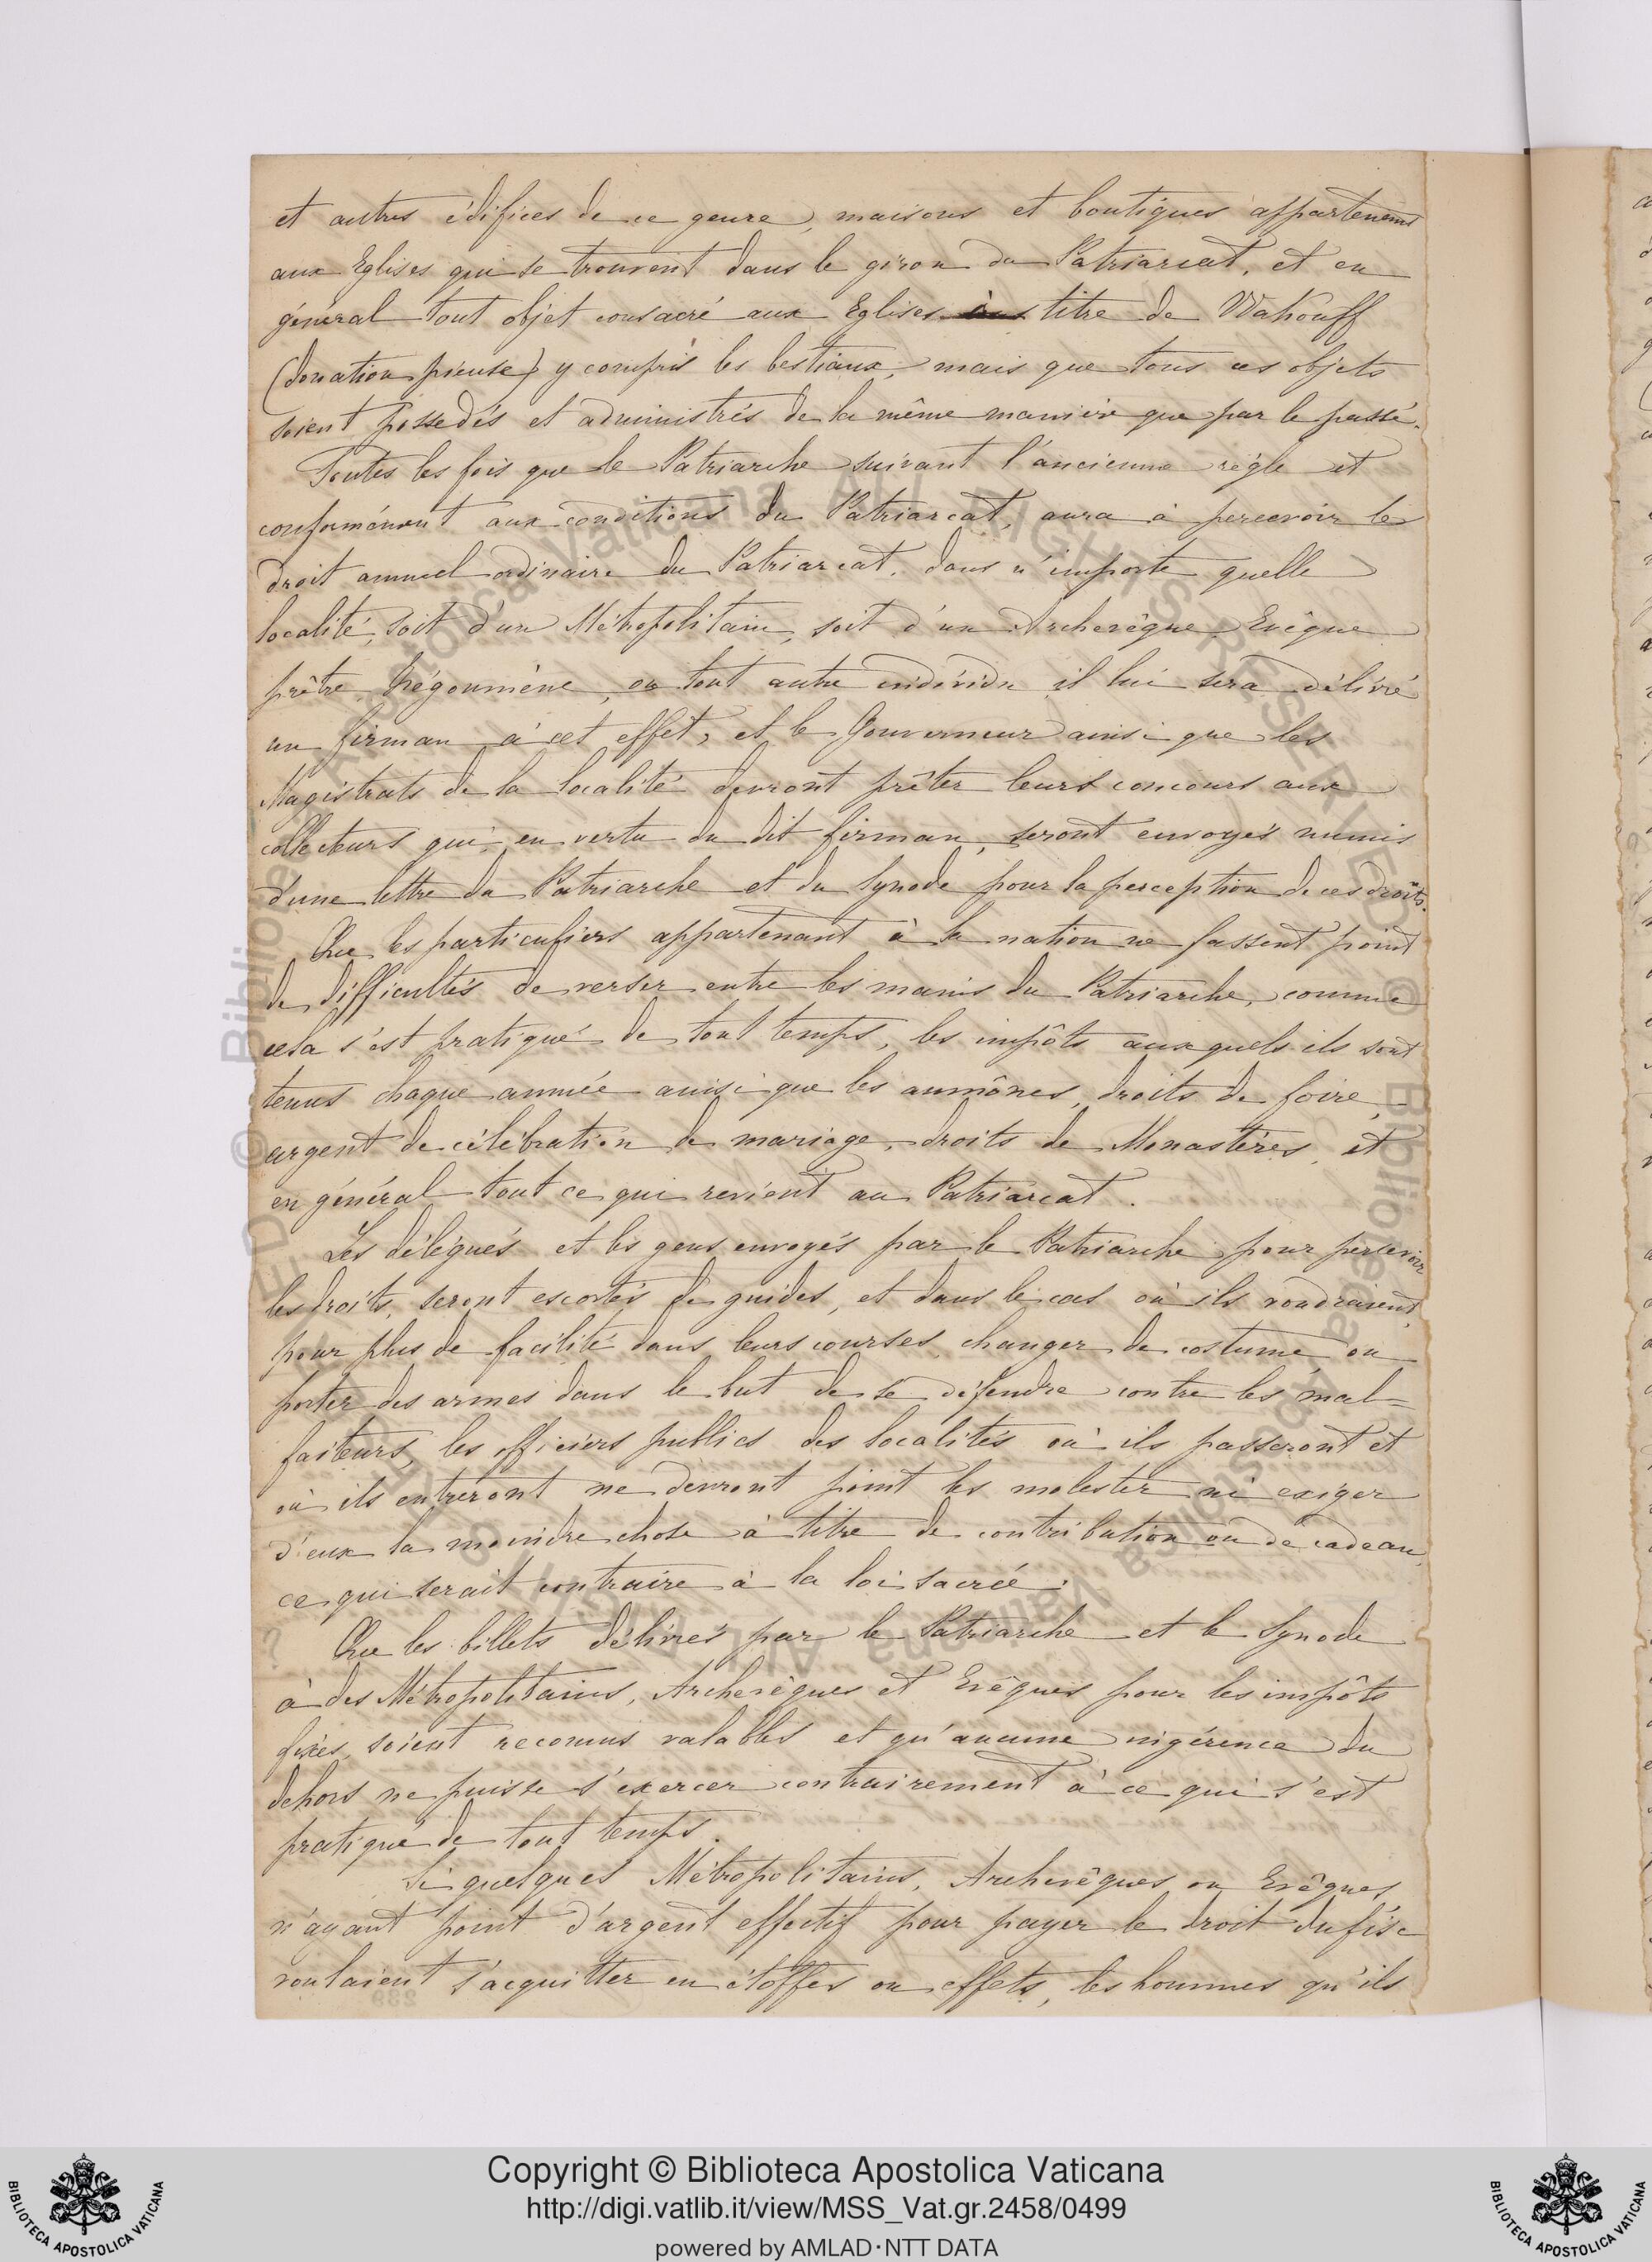 et autres édifices de ce genre, maisons et boutiques appartenant
aux Eglises qui se trouvent dans le giron du Patriarcat, et en
général tout objet consacré aux Eglises à titre de Wakouff
(donation pieuse) y compris les bestiaux, mais que tous ces objets
soient possedés et administrés de la même manière que par le passé.
Toutes les fois que le Patriarche suivant l'ancienne règle et
conformément aux conditions du Patriarcat, aura à percevoir le
droit annuel ordinaire du Patriarcat, dans n'importe quelle
localité, soit d'un Métropolitain, soit d'un Archevêque, Evêque
prêtre hégoumène, ou tout autre individu il lui sera délivré
un firman à cet effet, et le Gouverneur ainsi que les
Magistrats de la localité devront prêter leurs concours aux
collecteurs qui en vertu du dit firman, seront envoyés munis
d'une lettre du Patriarche et du Synode pour la perception de ces droits.
Que les particuliers appartenant à la nation ne fassent point
de difficultés de verser entre les mains du Patriarche, comme
cela s'est pratiqué de tout temps, les impôts auxquels ils sont
tenus chaque année ainsi que les aumônes, droits de foire,
argent de célébration de mariage, droits de Monastères, et
en général tout ce qui revient au Patriarcat.
Les délégués et les gens envoyés par le Patriarche pour percevoir
les droits, seront escortés de guides, et dans le cas où ils voudraient,
pour plus de facilité dans leurs courses, changer de costume ou
porter des armes dans le but de se défendre contre les mal=
faiteurs, les officiers publics des localités où ils passeront et
où ils entreront ne devront point les molester ni exiger
d'eux la moindre chose à titre de contribution ou de cadeau,
ce qui serait contraire à la loi sacrée.
Que les billets délivrés par le Patriarche et le Synode
à des Métropolitains, Archevêques et Evêques pour les impôts
fixes, soient reconnus valables et qu'aucune ingérence du
dehors ne puisse s'exercer contrairement à ce qui s'est
pratiqué de tout temps.
Si quelques Métropolitains, Archevêques ou Evêques,
n'ayant point d'argent effectif pour payer le droit du fisc
voulaient s'acquitter en étoffes ou effets, les hommes qu'ils
Copyright © Biblioteca Apostolica Vaticana
http://digi.vatlib.it/view/MSS_Vat.gr.2458/0499
powered by AMLAD·NTT DATA
BIBLIOTECA APOSTOLICA VATICANA
BIBLIOTECA APOSTOLICA VATICANA